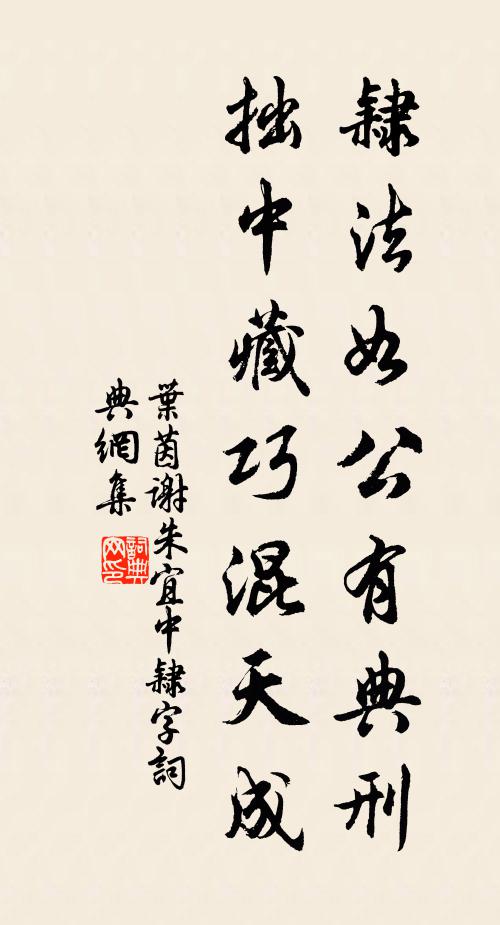 隸法如公有典刑
拙中藏巧混天成
葉茵謝朱宜中隸字詞
典網集
詞典
网印